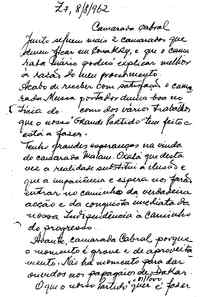 Z7, 8/8/962
Camarada Cabral
Junto seguem mais 2 camaradas que
devem ficar em Conakry, e que o cama
rada Mário poderá explicar melhor
a razão do meu procedimento.
Acabo de receber com satisfação o cama
rada portador duma boa no
tícia de como dos vários trabalhos
que o nosso Grande Partido tem feito e
está a fazer.
Tenho grandes esperanças na vinda
do camarada Malam. Oxalá que desta
vez a realidade substitua a ilusão e
que a impaciência e espera nos farão
entrar no caminho da verdadeira
acção e da conquista imediata da
nossa Independência a caminho
do progresso.
Avante, camarada Cabral, porque
o momento é grave e de aproveita
mento. Não há momento para dar
ouvidos aos papagaios de Dakar
O que o nosso Partido quer é fazer